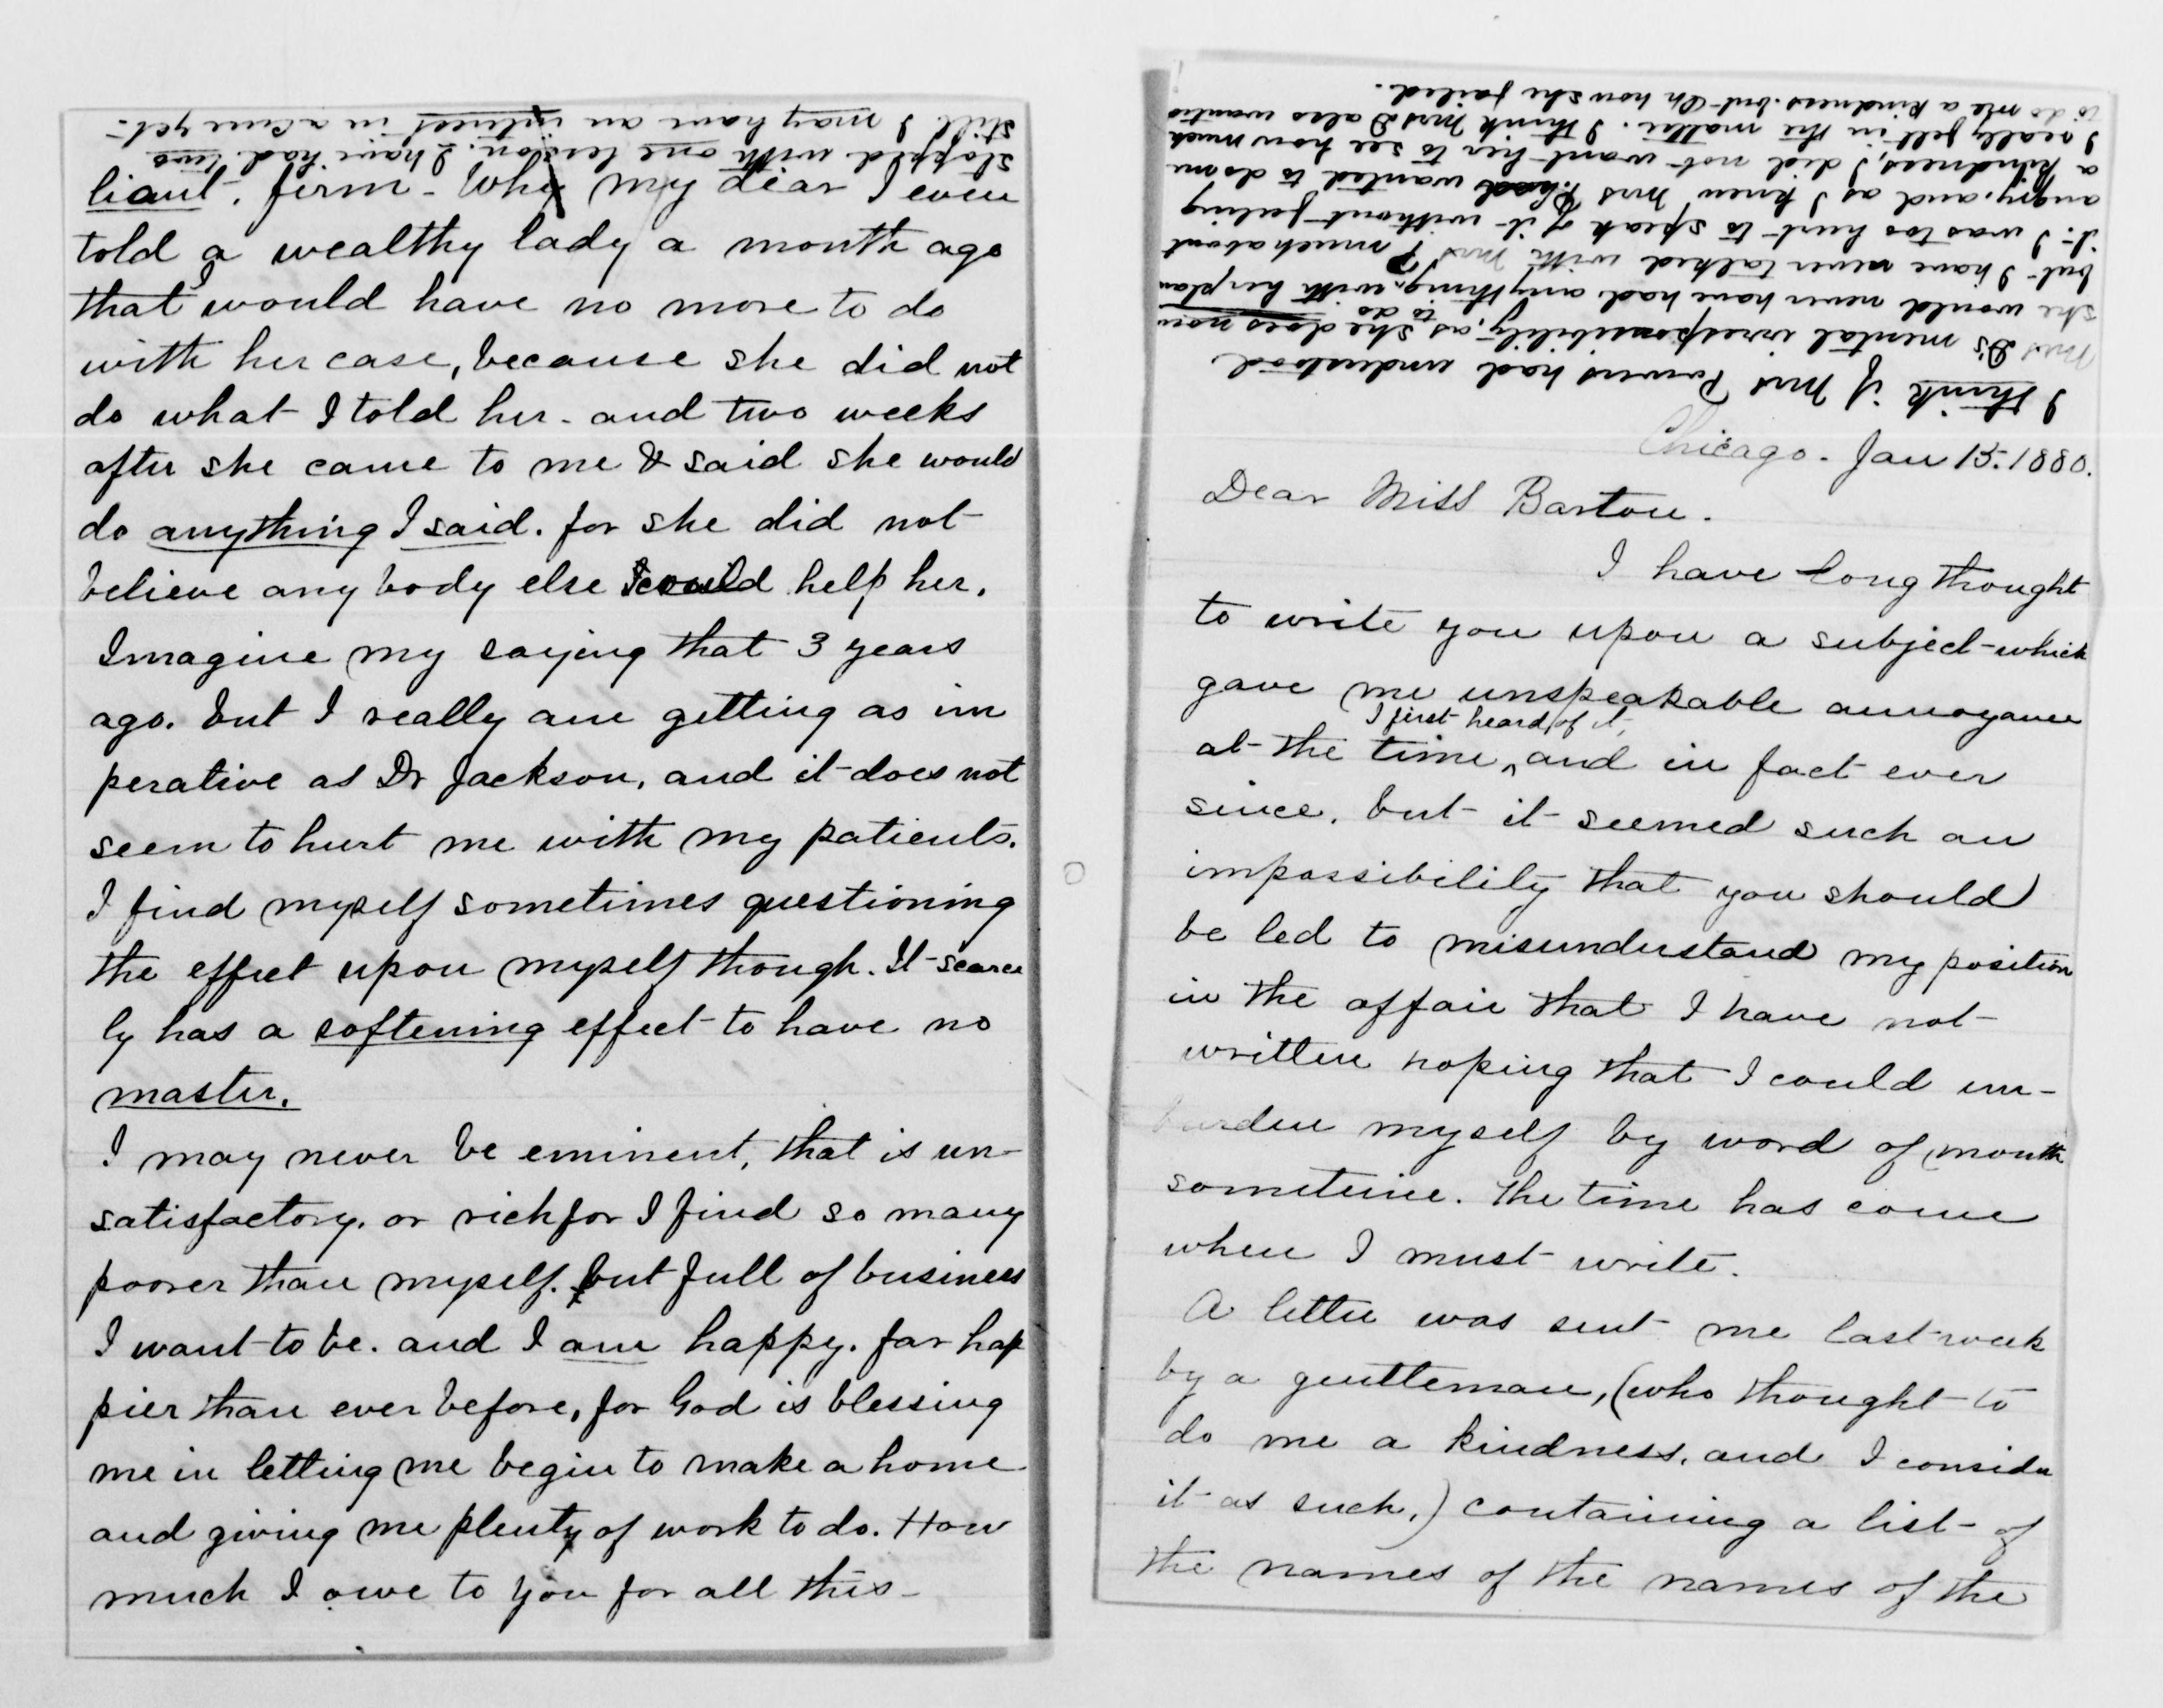 stopped with one lesson. I have had two
still I may have an interest in a cure yet-
liant, firm - Why my dear I even
told a wealthy lady a month ago
that I would have no more to do
with her case, because she did not
do what I told her - and two weeks
after she came to me & said she would
do anything I said. for she did not
believe any body else could help her.
Imagine my saying that 3 years
ago. but I really am getting as im
perative as Dr Jackson, and it does not
seem to hurt me with my patients.
I find myself sometimes questioning
the effect upon myself though. It scarce
ly has a softening effect to have no
master.
I may never be eminent, that is un-
satisfactory. or rich for I find so many
poorer than myself. but full of business
I want to be. and I am happy. far hap
pier than ever before, for God is blessing
me in letting me begin to make a home
and giving me plenty of work to do. How
much I owe to you for all this-
I think if Mrs Powers had understood
Mrs D's mental irresponsibility, as she does now
she would never have had anything to do with her plan
but I have never talked with Mrs P much about
it. I was too hurt to speak of it without feeling
angry. and as I knew Mrs P had wanted to do me
a kindness, I did not want her to see how much
I really felt in the matter. I think Mrs D also wanted
to do me a kindness. but Oh how she failed.
Chicago - Jan 15. 1880.
Dear Miss Barton.
I have long thought
to write you upon a subject which
gave me unspeakable annoyance
at the time I first heard of it, and in fact ever
since. but it seemed such an
impossibility that you should
be led to misunderstand my position
in the affair that I have not
written hoping that I could un-
burden myself by word of mouth
sometime. The time has come
when I must write.
A letter was sent me last week
by a gentleman, (who thought to
do me a kindness, and I consider
it as such,) containing a list of
the names of the names of the